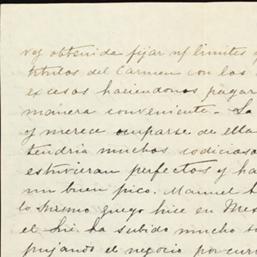 vez obtenida fijar n/ limites y
titulos del Carmen con los
excesos haciendonos pagar
manera conveniente. La
y merece ocuparse de ella
tendria muchos codiciaso
estuvieran perfectos y ha
un buen pico. Manuel h
lo mismo que yo hice en Mex
el Sñr. ha subido mucho
pujando el negocio por